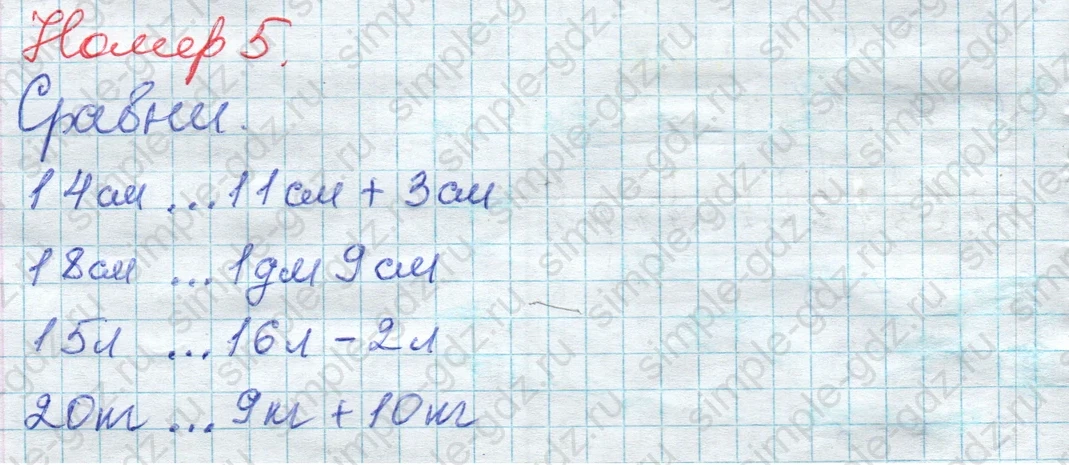 Номер 5.
Сравни.
14см ... 11см + 3см
18см ... 1дм 9см
15л ... 16л - 2л
20кг ... 9кг + 10кг
simple-gdz.ru